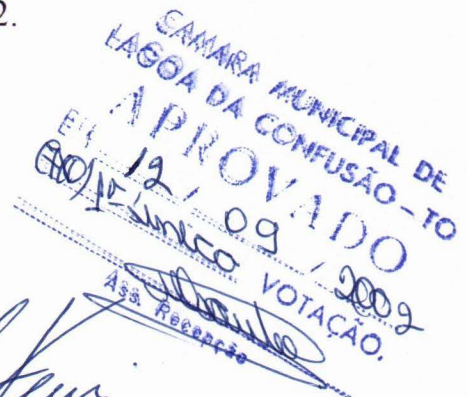 2.
CAMARA MUNICIPAL DE
LAGOA DA CONFUSÃO - TO
APROVADO
EM 12 / 09 / 2002
1ª única VOTAÇÃO.
Ass. Recepção